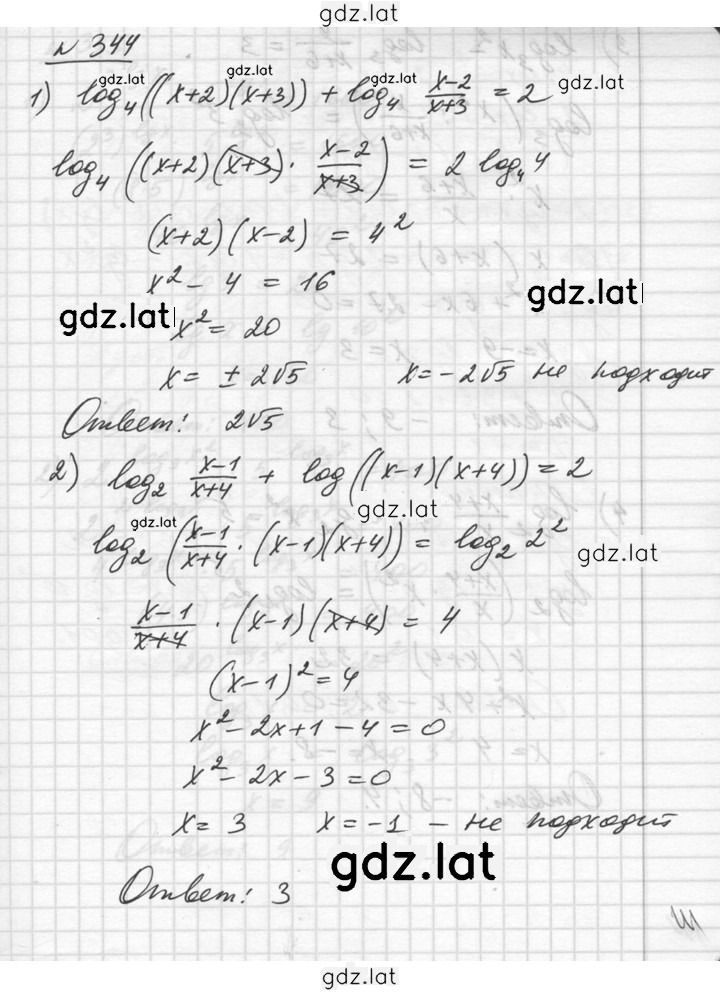 gdz.lat
N 344
gdz.lat gdz.lat gdz.lat
1) log₄((x+2)(x+3)) + log₄ (x-2)/(x+3) = 2
log₄((x+2)(x+3) · (x-2)/(x+3)) = 2 log₄4
(x+2)(x-2) = 4²
x² - 4 = 16
gdz.lat
gdz.lat
x² = 20
x = ± 2√5 x = -2√5 не подходит
Ответ: 2√5
2) log₂ (x-1)/(x+4) + log((x-1)(x+4)) = 2
gdz.lat gdz.lat
log₂((x-1)/(x+4) · (x-1)(x+4)) = log₂2²
gdz.lat
(x-1)/(x+4) · (x-1)(x+4) = 4
(x-1)² = 4
x² - 2x + 1 - 4 = 0
x² - 2x - 3 = 0
x = 3 x = -1 - не подходит
gdz.lat
Ответ: 3
gdz.lat